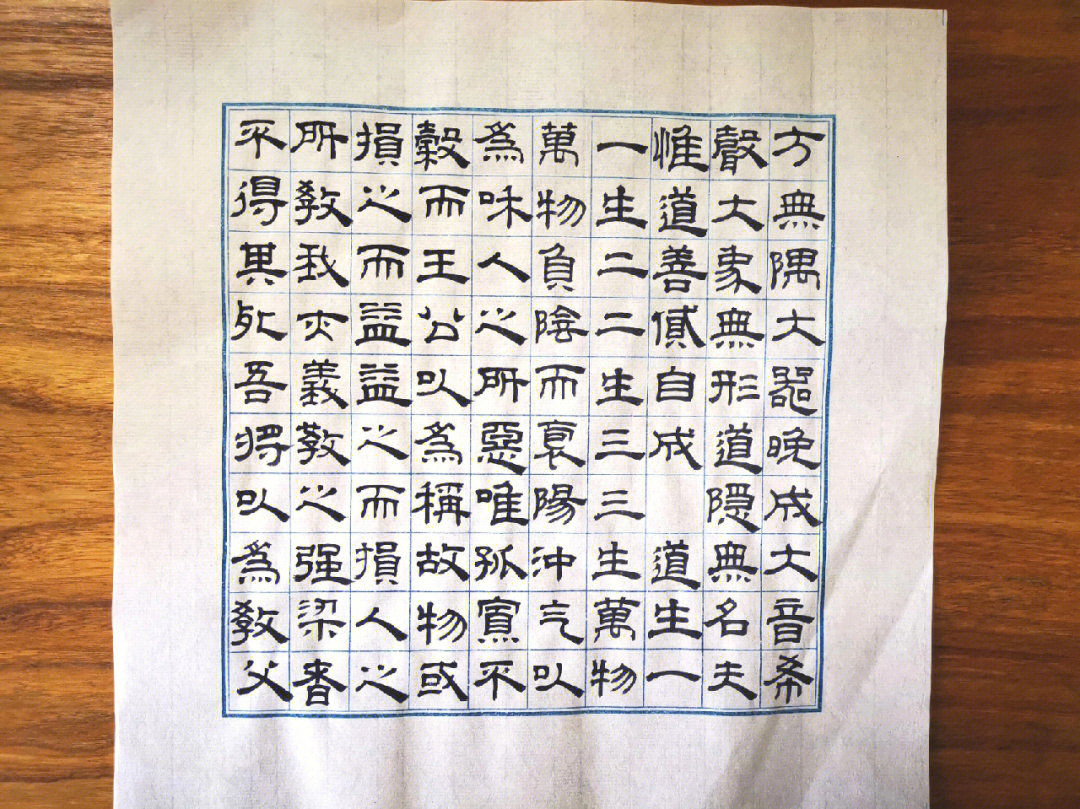 方無隅大器晚成大音希
聲大象無形道隱無名夫
惟道善貸自成 道生一
一生二二生三三生萬物
萬物負陰而裒陽沖气以
爲咊人之所惡唯孤寡不
穀而王公以爲稱故物或
損之而益益之而損人之
所教我亦義教之强梁者
不得其死吾將以爲教父